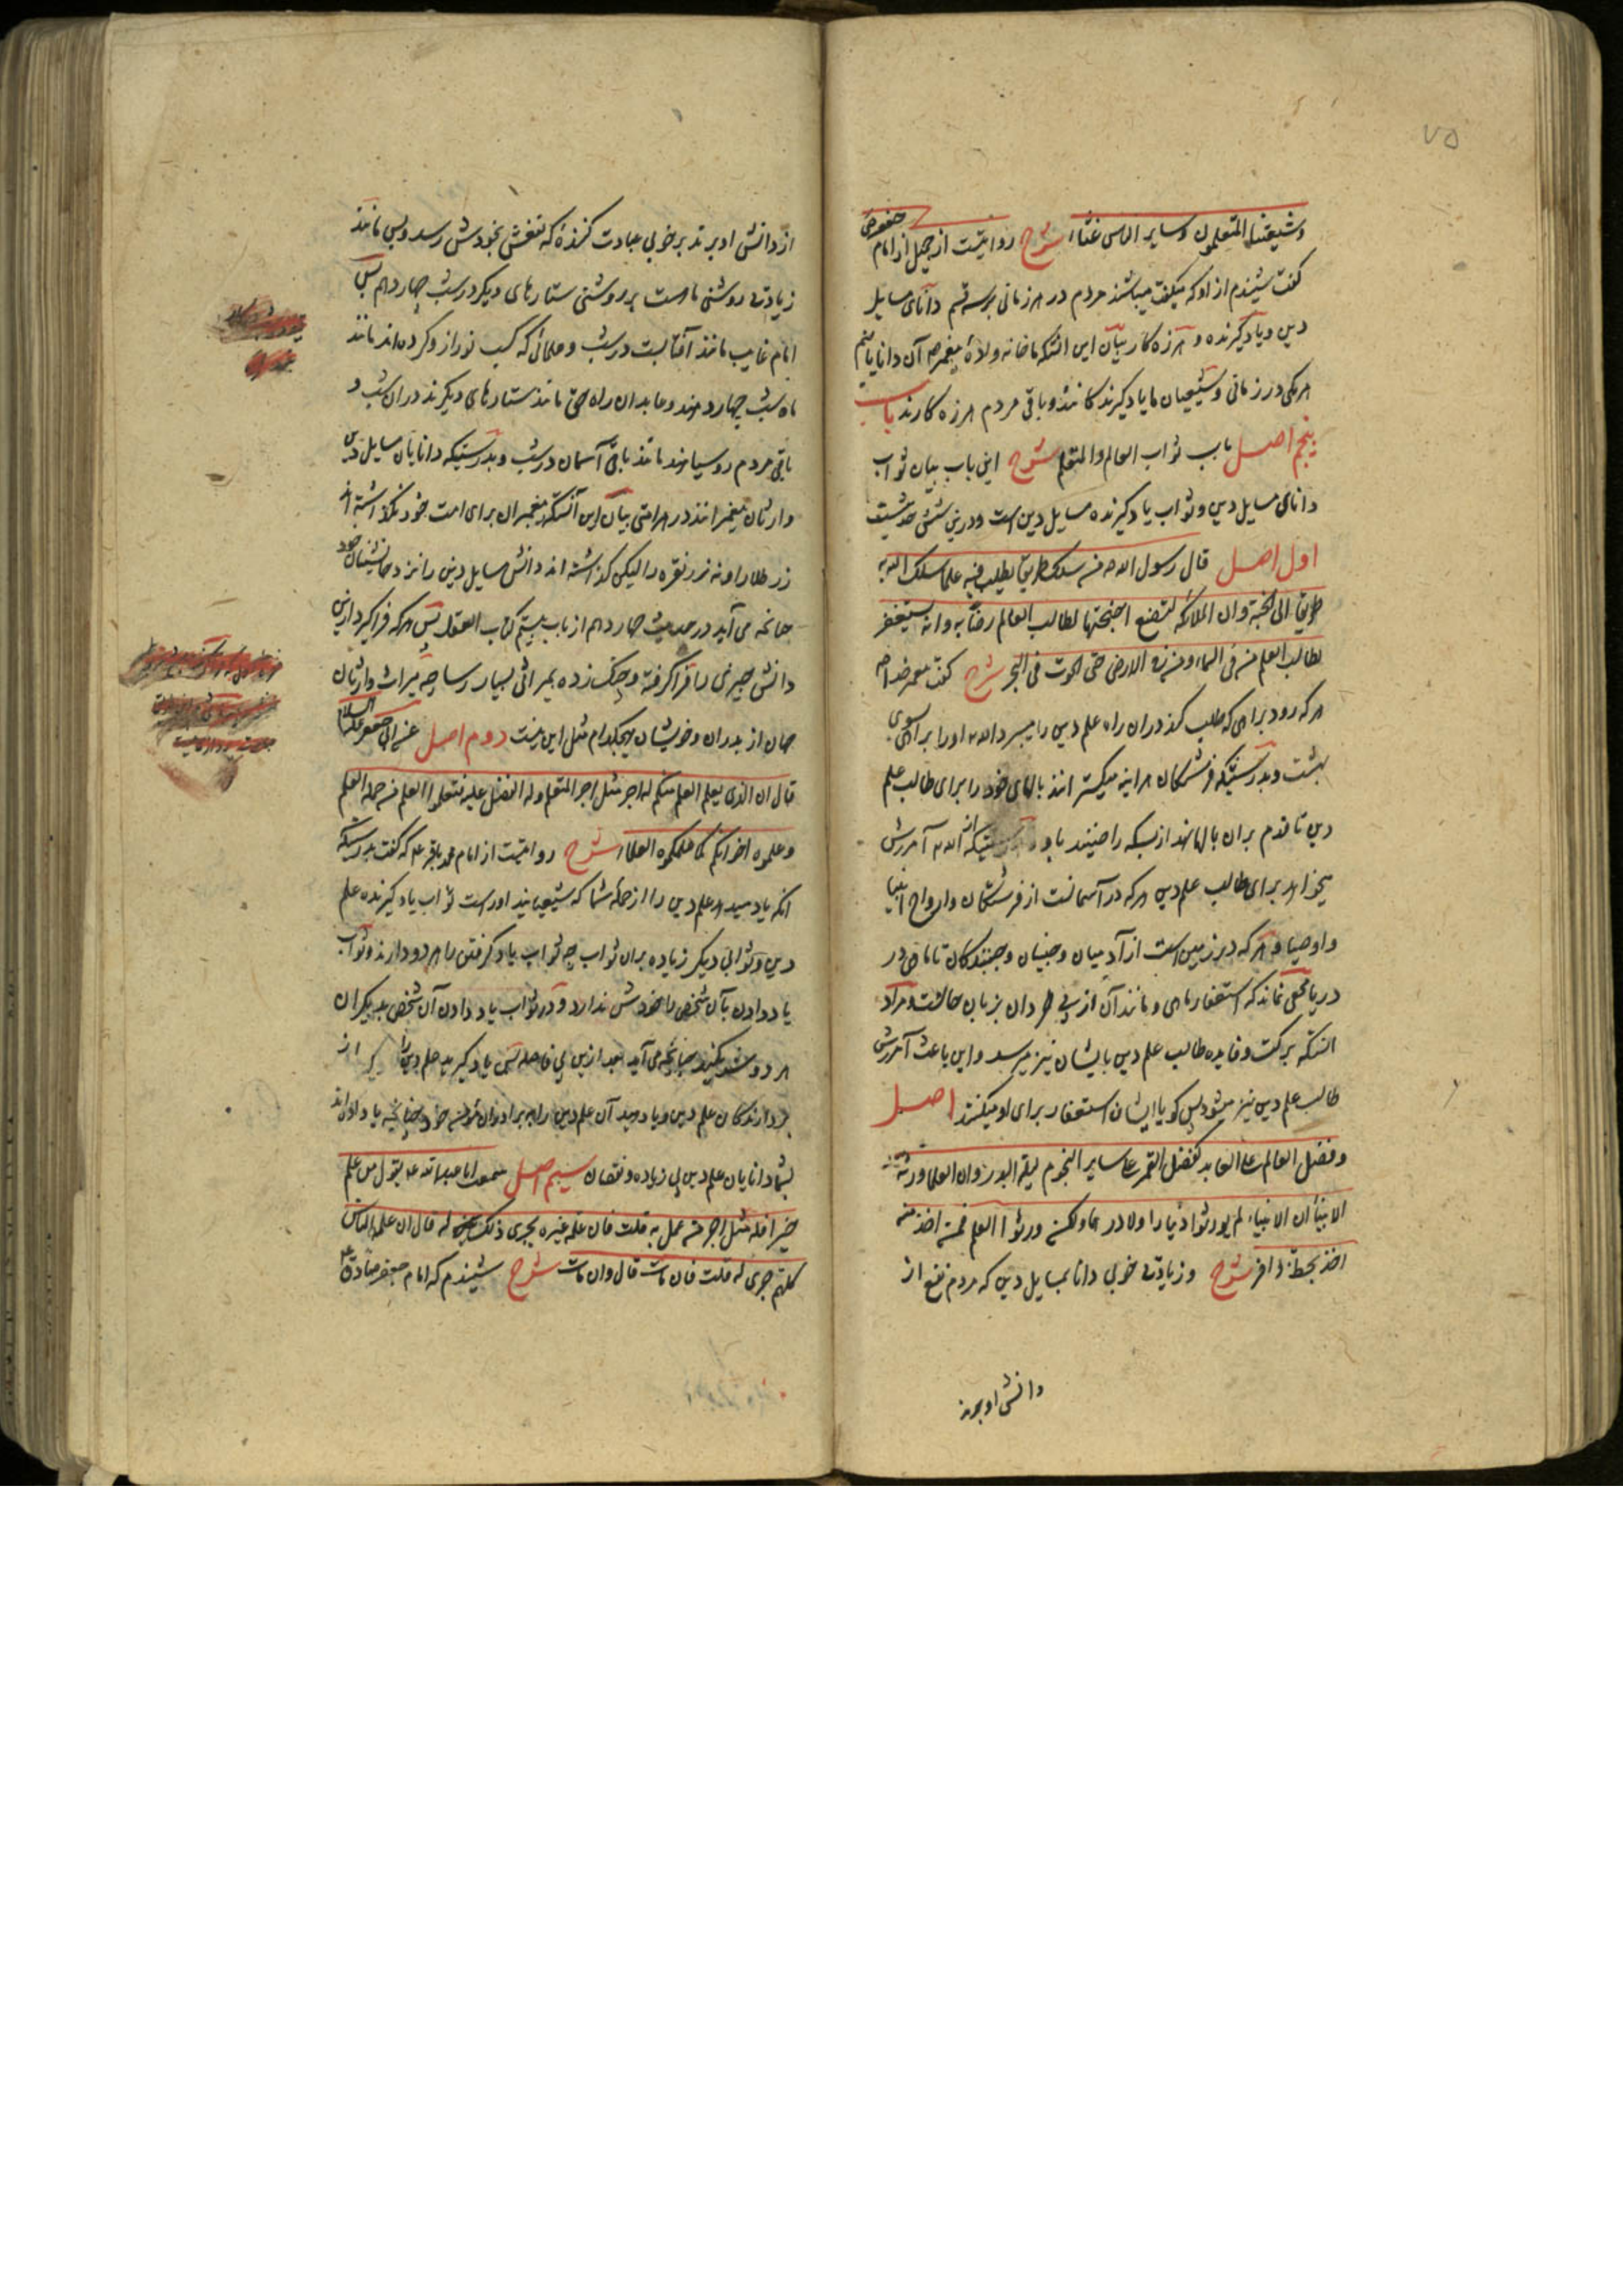 ۷۵
وشیعتنا المتعلمون وسایر الناس غثاء شرح روایتست از جمیل از امام جعفر ص
کفت شنیدم از او که میکفت میباشند مردم در هر زمانی بر سه قسم دانای مسایل
دین و یاد کیرنده و هرزه کار بیان این انتکه ما خانه ولادهٔ پیغمبر ص آن دانایانیم
هر یکی در زمانی و شیعیان ما یاد کیرندکانند و باقی مردم هرزه کارند باب
پنجم اصل باب ثواب العالم والمتعلم شرح این باب بیان ثواب
دانای مسایل دین و ثواب یاد کیرنده مسایل دین است و درین شش حدیثست
اول اصل قال رسول الله ص من سلک طریقا یطلب فیه علما سلک الله به
طریقا الی الجنة وان الملائکه لتضع اجنحتها لطالب العالم رضا به وانه یستغفر
لطالب العلم من فی السماء ومن فی الارض حتی الحوت فی البحر شرح کفت پیغمبر خدا ص
هر که رود براهی که طلب کند دران راه علم دین را میبرد الله او را براهی سوی
بهشت و بدرستیکه فرشتکان هر اینه میکسترانند بالهای خود را برای طالب علم
دین تا قدم بران بالها نهد از بسکه راضیند باو الله آمرزش
میخواهد برای طالب علم دین هر که در آسمانست از فرشتکان و ارواح انبیا
و اوصیا و هر که در زمین است از آدمیان و جنیان و جنبندکان تا ماهی در
دریا مخفی نماند که استغفار ماهی و مانند آن از بی خردان بزبان حالست و مراد
انستکه برکت و فایده طالب علم دین بایشان نیز میرسد و این باعث آمرزش
طالب علم دین نیز میشود پس کویا ایشان استغفار برای او میکنند اصل
وفضل العالم علی العابد کفضل القمر علی سایر النجوم لیلة البدر وان العلماء ورثة
الانبیاء ان الانبیاء لم یورثوا دینارا ولا درهما ولکن ورثوا العلم فمن اخذ منه
اخذ بحظ وافر شرح و زیادتی خوبی دانا بمسایل دین که مردم نفع از
دانش او برند
از دانش او برند بر خوبی عبادت کنندهٔ که نفعش بخودش رسد و بس مانند
زیادتی روشنی ماه است بر روشنی ستارهای دیکر در شب چهاردهم پس
امام غایب مانند آفتابست در شب و علمائی که کسب نور از و کرده اند مانند
ماه شب چهاردهند و عابدان راه حق مانند ستارهای دیکرند دران شب و
باقی مردم رو سیاهند مانند باقی آسمان در شب و بدرستیکه دانایان مسایل دین
وارثان پیغمبرانند در هر امتی بیان این آنستکه پیغمبران برای امت خود نکذاشته اند
زر طلا را و نه زر نقره را لیکن کذاشته اند دانش مسایل دین را نزد جانشینان خود
چنانچه می آید در حدیث چهاردهم از باب بیستم کتاب العقل پس هر که فرا کیرد ازین
دانش چیزی را فرا کرفته و چنک زده بمیراثی بسیار رسا چه میراث وارثان
جهان از پدران و خویشان هیچکدام مثل این نیست دوم اصل عن ابی جعفر علیه السلام
قال ان الذی یعلم العلم منکم له اجر مثل اجر المتعلم وله الفضل علیه فتعلموا العلم من حملة العلم
وعلموه اخوانکم کما علمکموه العلماء شرح روایتست از امام محمد باقر ع که کفت بدرستیکه
انکه یاد میدهد علم دین را از جملهٔ شما که شیعیانید اوراست ثواب یاد کیرنده علم
دین و ثوابی دیکر زیاده بران ثواب چه ثواب یاد کرفتن را هر دو دارند و ثواب
یاد دادن بآن شخص را خودش ندارد و در ثواب یاد دادن آن شخص بدیکران
هر دو شریکند چنانچه می آید بعد ازین بی فاصله پس یاد کیرید علم دین را از
بردارندکان علم دین و یاد دهید آن علم دین را به برادران مؤمن خود چنانچه یاد داده اند
بشما دانایان علم دین بی زیاده و نقصان سیم اصل سمعت ابا عبدالله ع یقول من علم
خیرا فله مثل اجر من عمل به قلت فان علمه غیره یجری ذلک له قال ان علمه الناس
کلهم جری له قلت فان مات قال وان مات شرح شنیدم که امام جعفر صادق ع